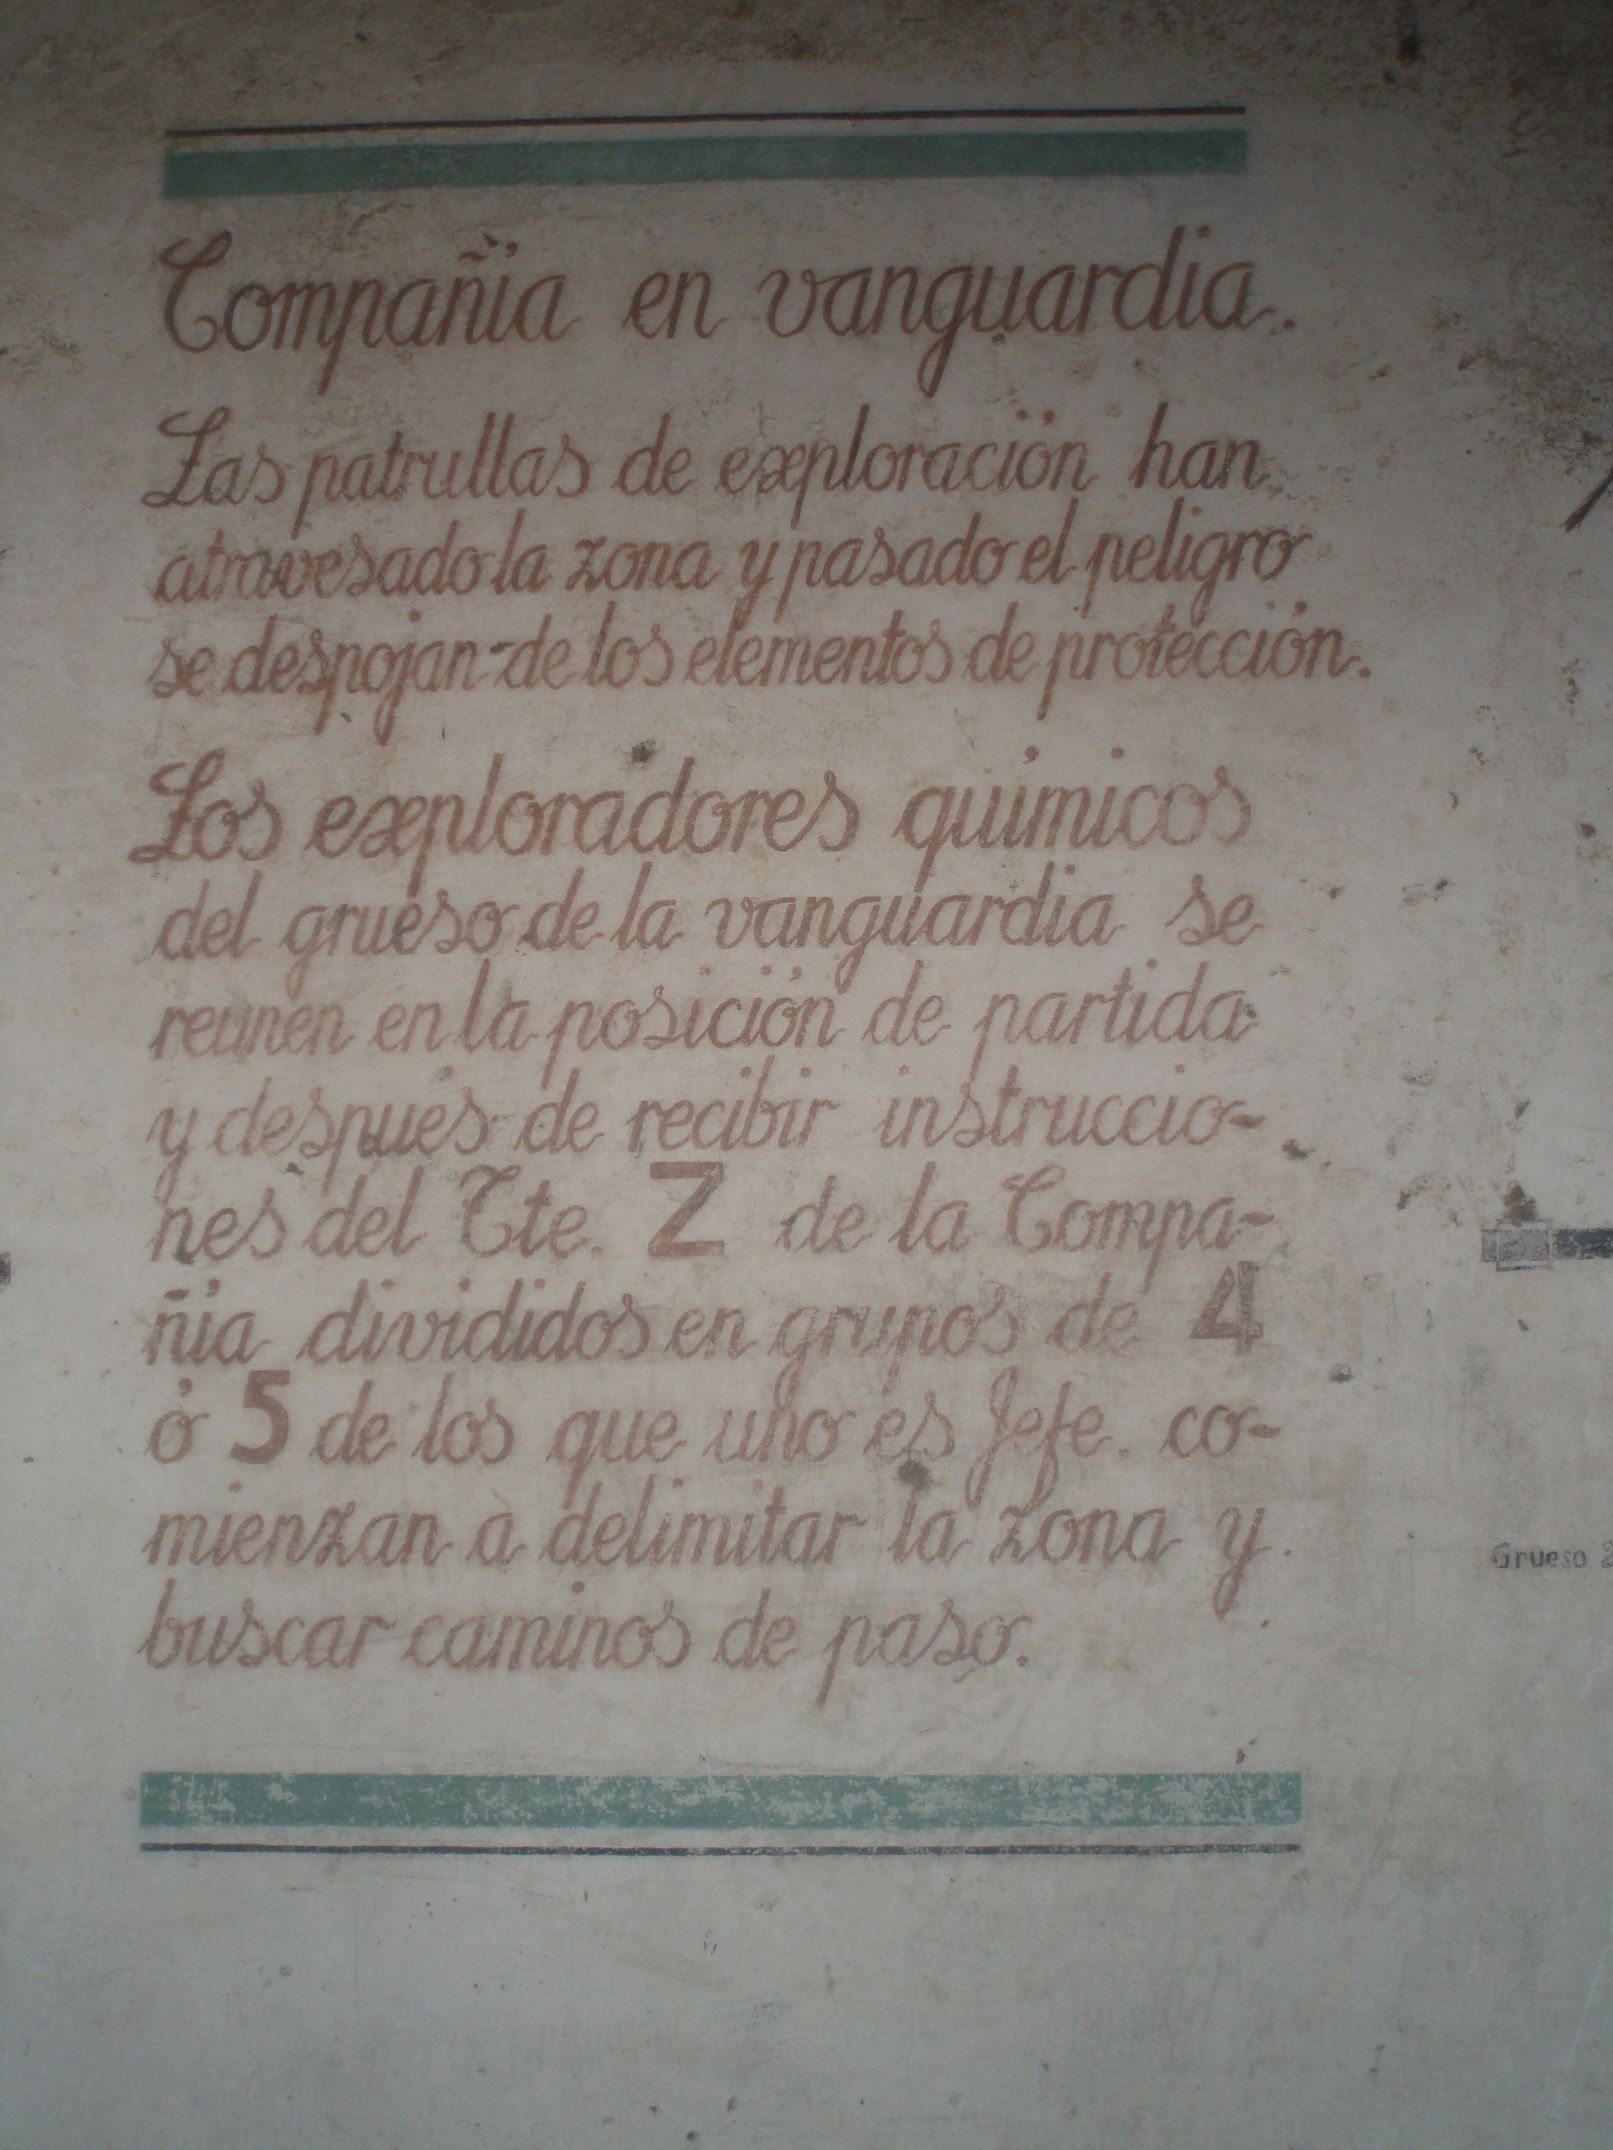 Compañía en vanguardia.
Las patrullas de exploración han
atravesado la zona y pasado el peligro
se despojan de los elementos de protección.
Los exploradores químicos
del grueso de la vanguardia se
reunen en la posición de partida
y después de recibir instruccio-
nes del Tte. Z de la Compa-
ñía divididos en grupos de 4
ó 5 de los que uno es Jefe. co-
mienzan a delimitar la zona y
buscar caminos de paso.
Grueso 2